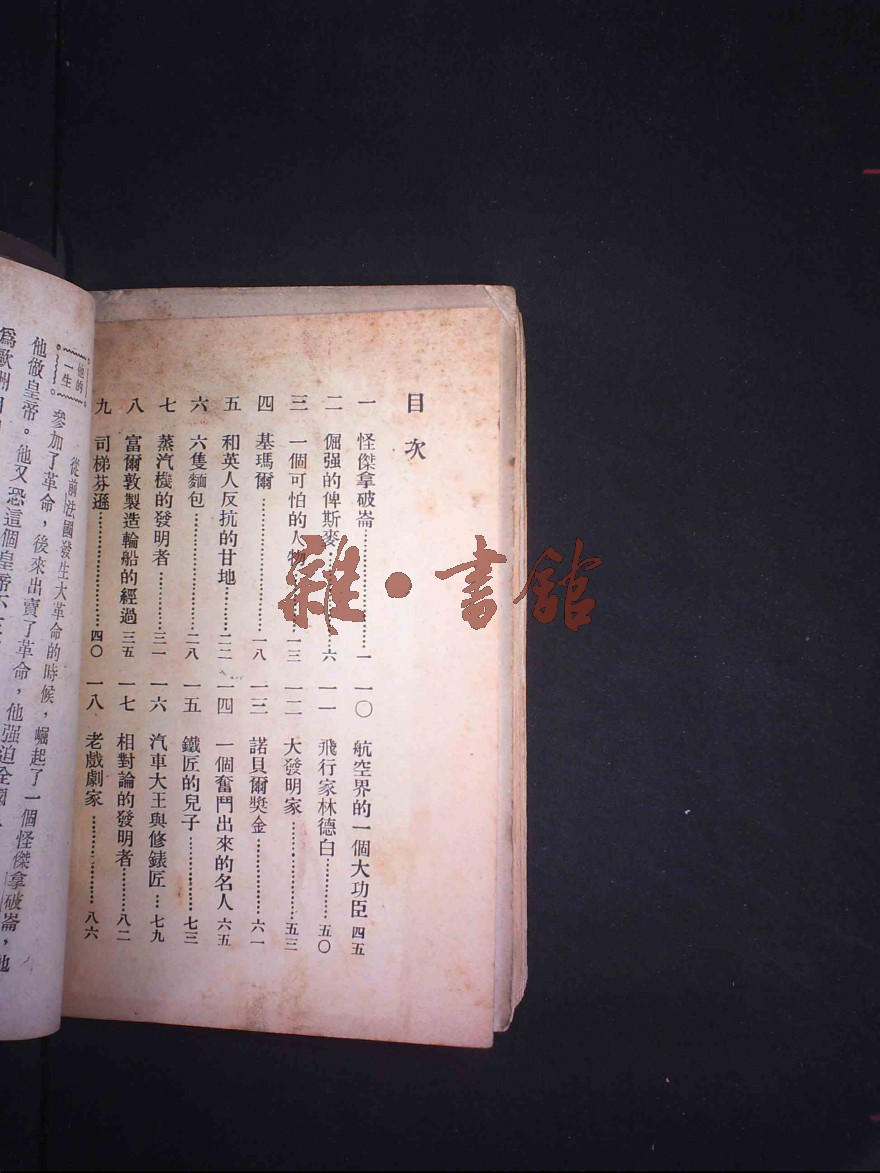 目次
一 怪傑拿破崙……一
二 倔强的俾斯麥……六
三 一個可怕的人物……一三
四 基瑪爾……一八
五 和英人反抗的甘地……二二
六 六隻麵包……二八
七 蒸汽機的發明者……三一
八 富爾敦製造輪船的經過 三五
九 司梯芬遜……四〇
一〇 航空界的一個大功臣 四五
一一 飛行家林德白……五〇
一二 大發明家……五三
一三 諾貝爾奬金……六一
一四 一個奮鬥出來的名人 六五
一五 鐵匠的兒子……七三
一六 汽車大王與修錶匠…七九
一七 相對論的發明者……八二
一八 老戲劇家……八六
他的一生
從前法國發生大革命的時候，崛起了一個怪傑拿破崙，他
參加了革命，後來出賣了革命，他强迫全國
他做皇帝。他又恐這個皇帝不
爲歐洲
雜·書館